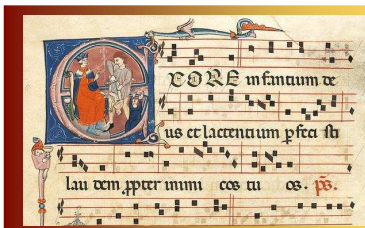 EX ORE infantium de
us et lactentium pfeci sti
lau dem ppter inimi cos tu os. ps.